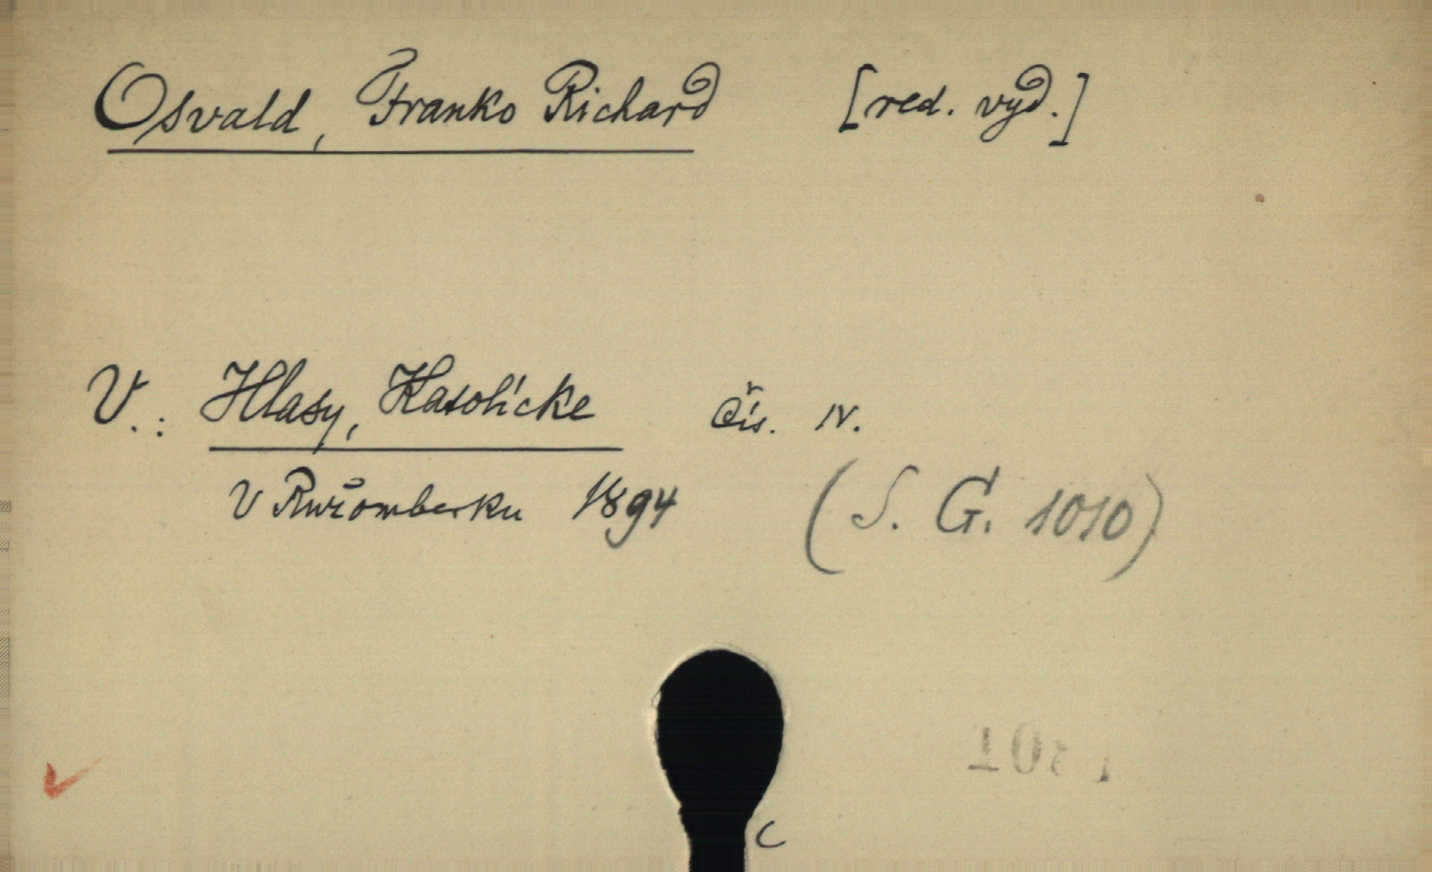 Osvald, Franko Richard [red. vyd.]
V.: Hlasy, Katolícke čís. IV.
V Ružomberku 1894 (S. G. 1010)
C